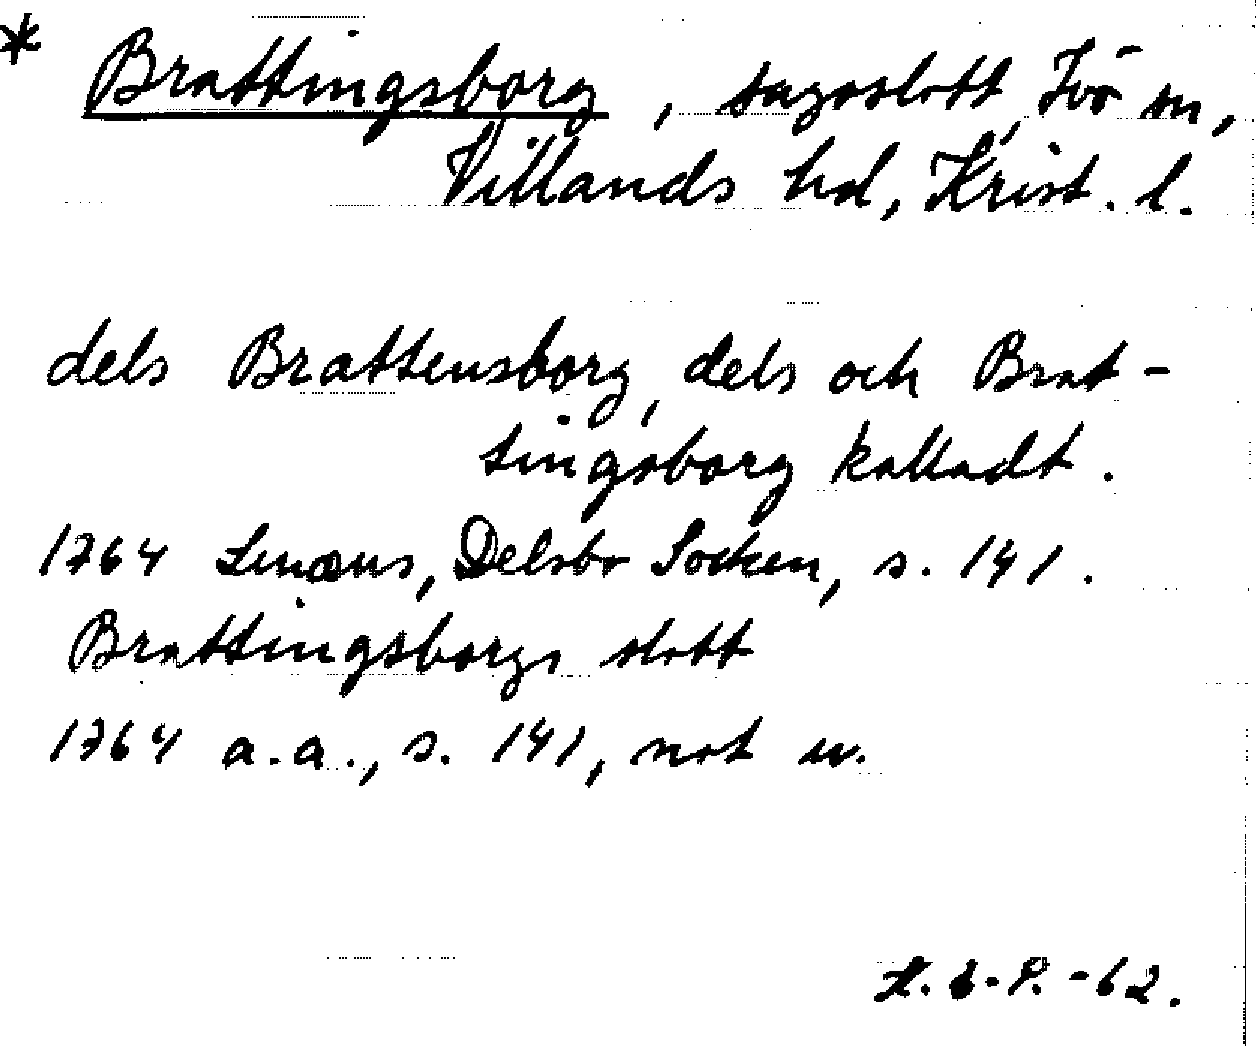 * Brattingsborg, sagoslott, Ivö sn,
Villands hd, Krist. l.
dels Brattensborg, dels och Brat-
tingsborg kalladt.
1764 Lenæus, Delsbo Socken, s. 141.
Brattingsborgs slott
1764 a.a., s. 141, not w.
-62.